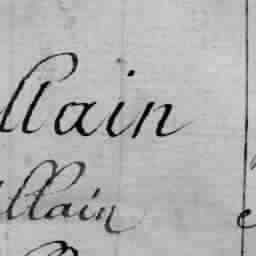 llain
illain